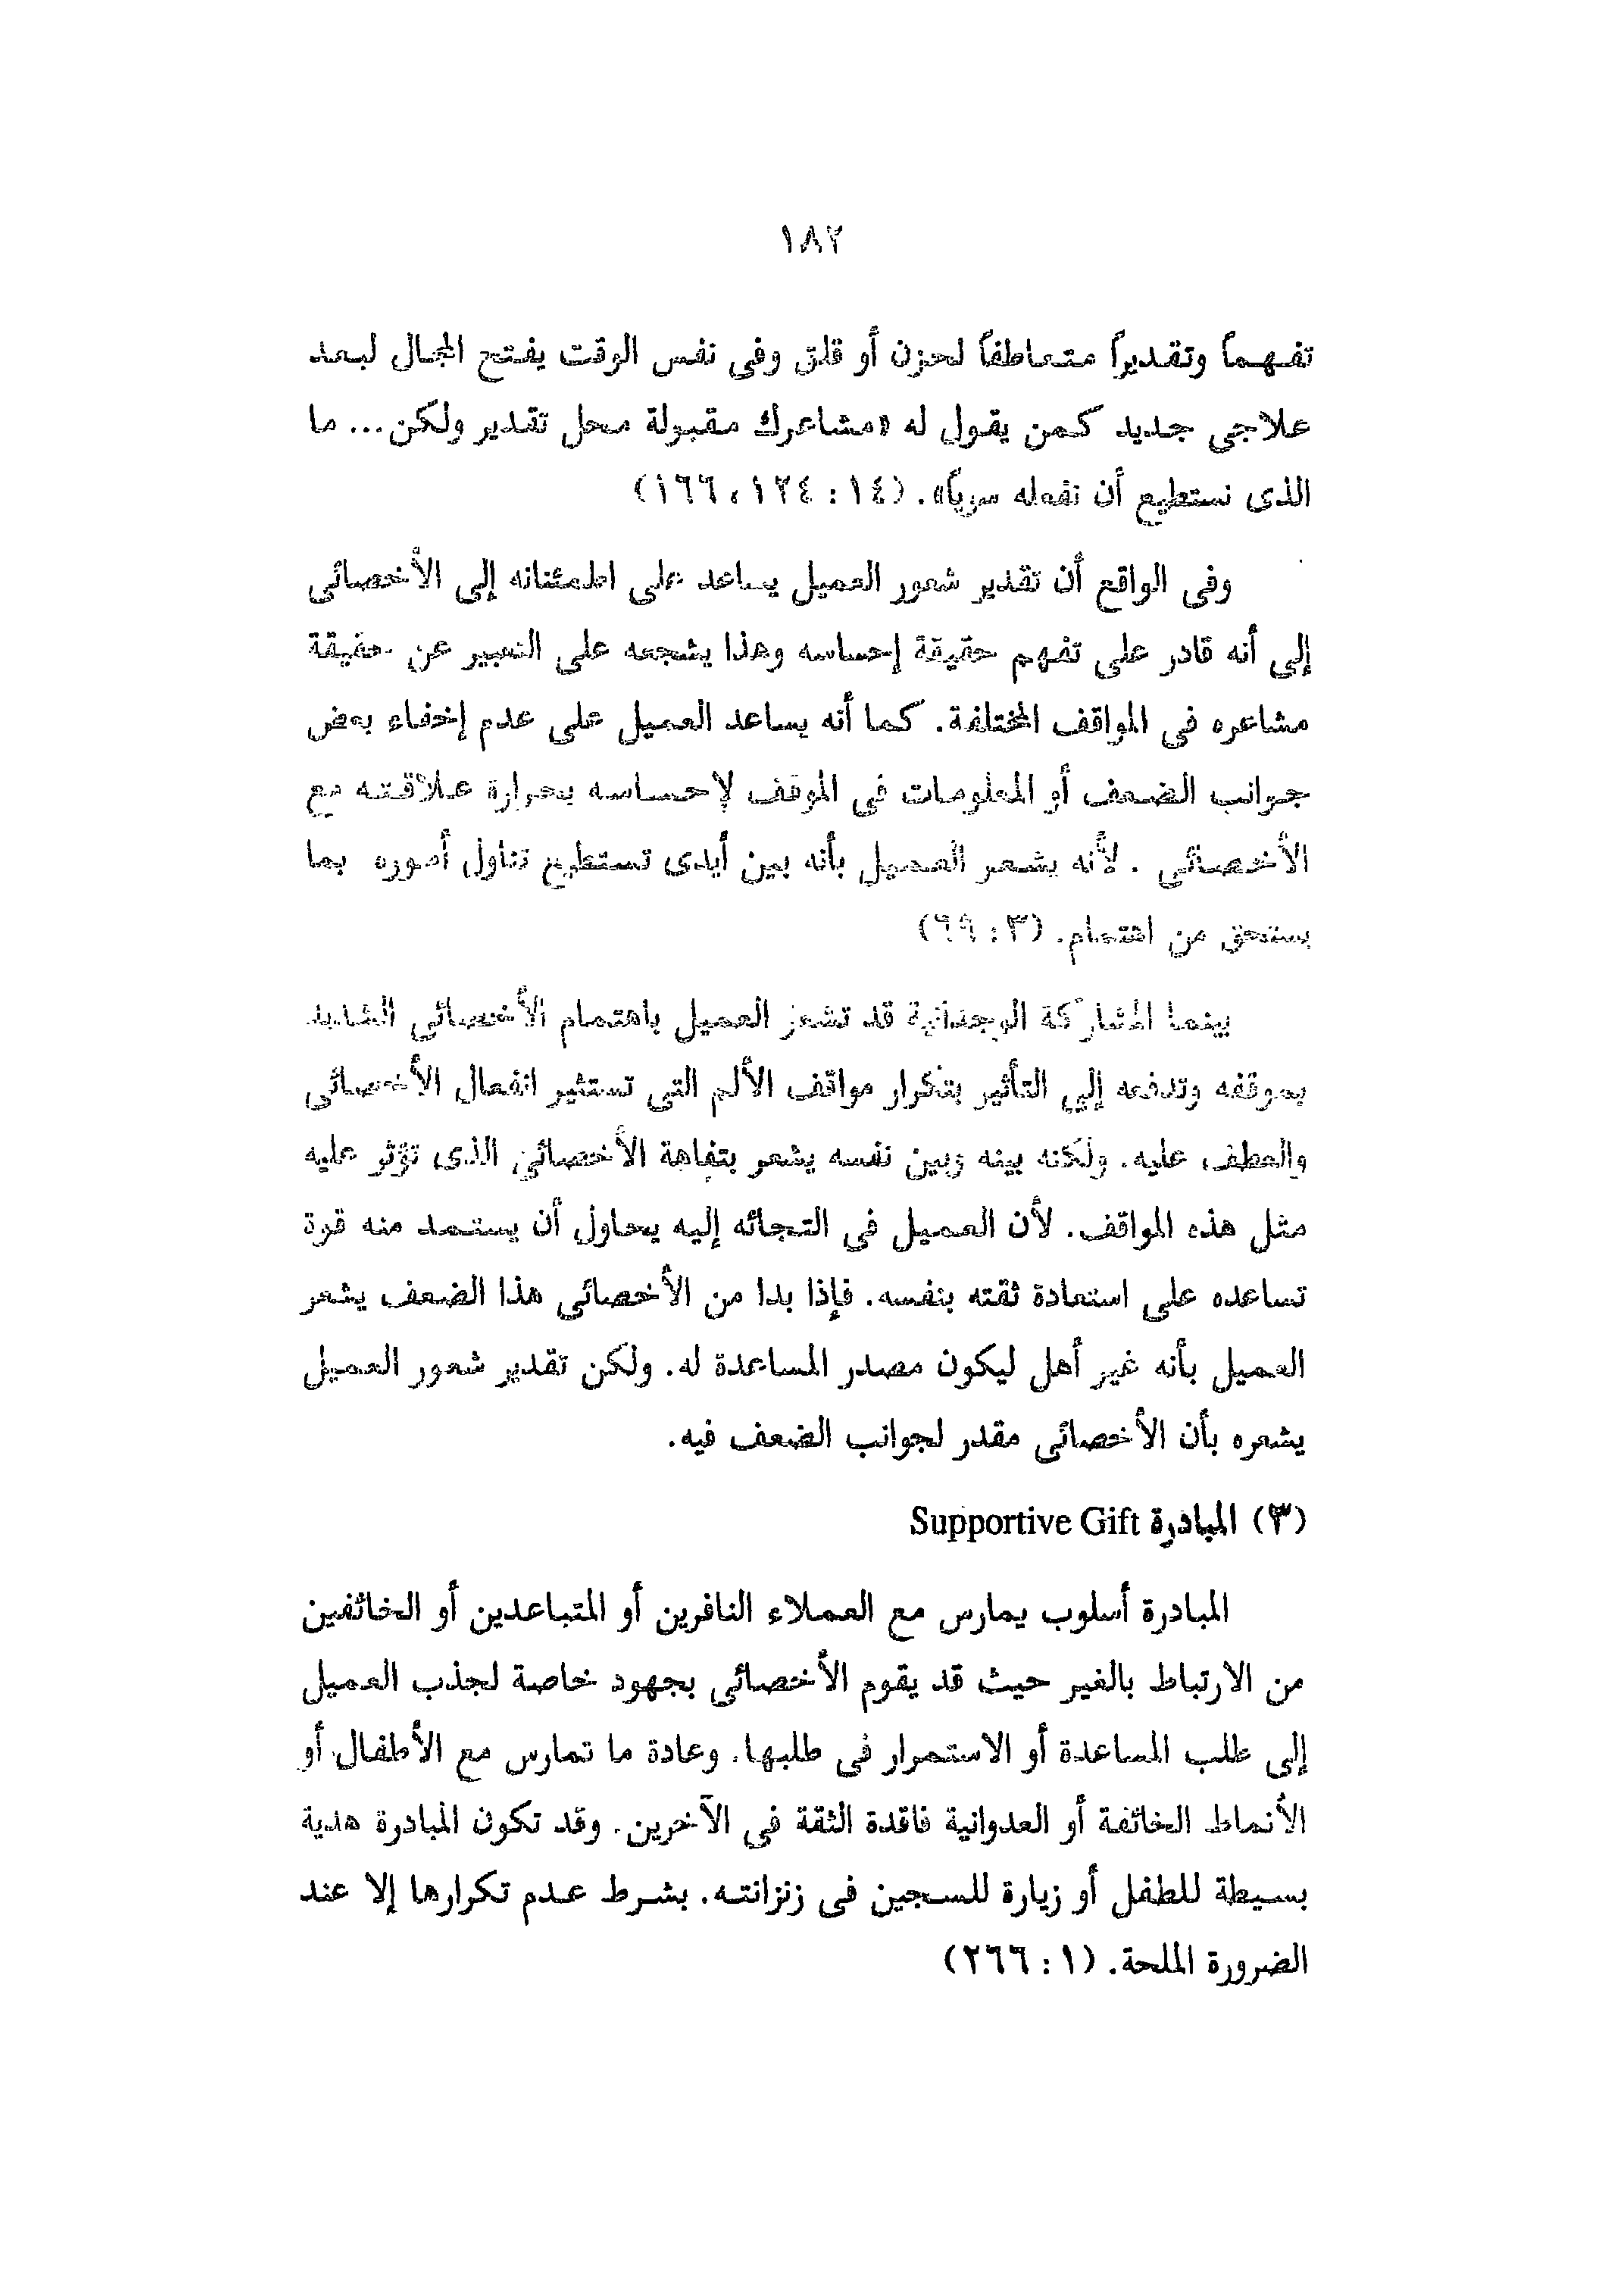 ١٨٢
تفهماً وتقديراً متعاطفاً لحزن أو قلق وفى نفس الوقت يفتح المجال لبعد
علاجى جديد كمن يقول له «مشاعرك مقبولة محل تقدير ولكن... ما
الذى نستطيع أن نفعله سوياً». (١٤ : ١٢٤، ١٦٦)
وفى الواقع أن تقدير شعور العميل يساعد على اطمئنانه إلى الأخصائى
إلى أنه قادر على تفهم حقيقة إحساسه وهذا يشجعه على التعبير عن حقيقة
مشاعره فى المواقف المختلفة. كما أنه يساعد العميل على عدم إخفاء بعض
جوانب الضعف أو المعلومات فى الموقف لإحساسه بحرارة علاقته مع
الأخصائى . لأنه يشعر العميل بأنه بين أيدى تستطيع تناول أموره بما
يستحق من اهتمام. (٣ : ٦٩)
بينما المشاركة الوجدانية قد تشعر العميل باهتمام الأخصائى الشديد
بموقفه وتدفعه إلى التأثير بتكرار مواقف الألم التى تستثير انفعال الأخصائى
والعطف عليه. ولكنه بينه وبين نفسه يشعر بتفاهة الأخصائى الذى تؤثر عليه
مثل هذه المواقف. لأن العميل فى التجائه إليه يحاول أن يستمد منه قوة
تساعده على استعادة ثقته بنفسه. فإذا بدا من الأخصائى هذا الضعف يشعر
العميل بأنه غير أهل ليكون مصدر المساعدة له. ولكن تقدير شعور العميل
يشعره بأن الأخصائى مقدر لجوانب الضعف فيه.
(٣) المبادرة Supportive Gift
المبادرة أسلوب يمارس مع العملاء النافرين أو المتباعدين أو الخائفين
من الارتباط بالغير حيث قد يقوم الأخصائى بجهود خاصة لجذب العميل
إلى طلب المساعدة أو الاستمرار فى طلبها. وعادة ما تمارس مع الأطفال أو
الأنماط الخائفة أو العدوانية فاقدة الثقة فى الآخرين. وقد تكون المبادرة هدية
بسيطة للطفل أو زيارة للسجين فى زنزانته. بشرط عدم تكرارها إلا عند
الضرورة الملحة. (١ : ٢٦٦)